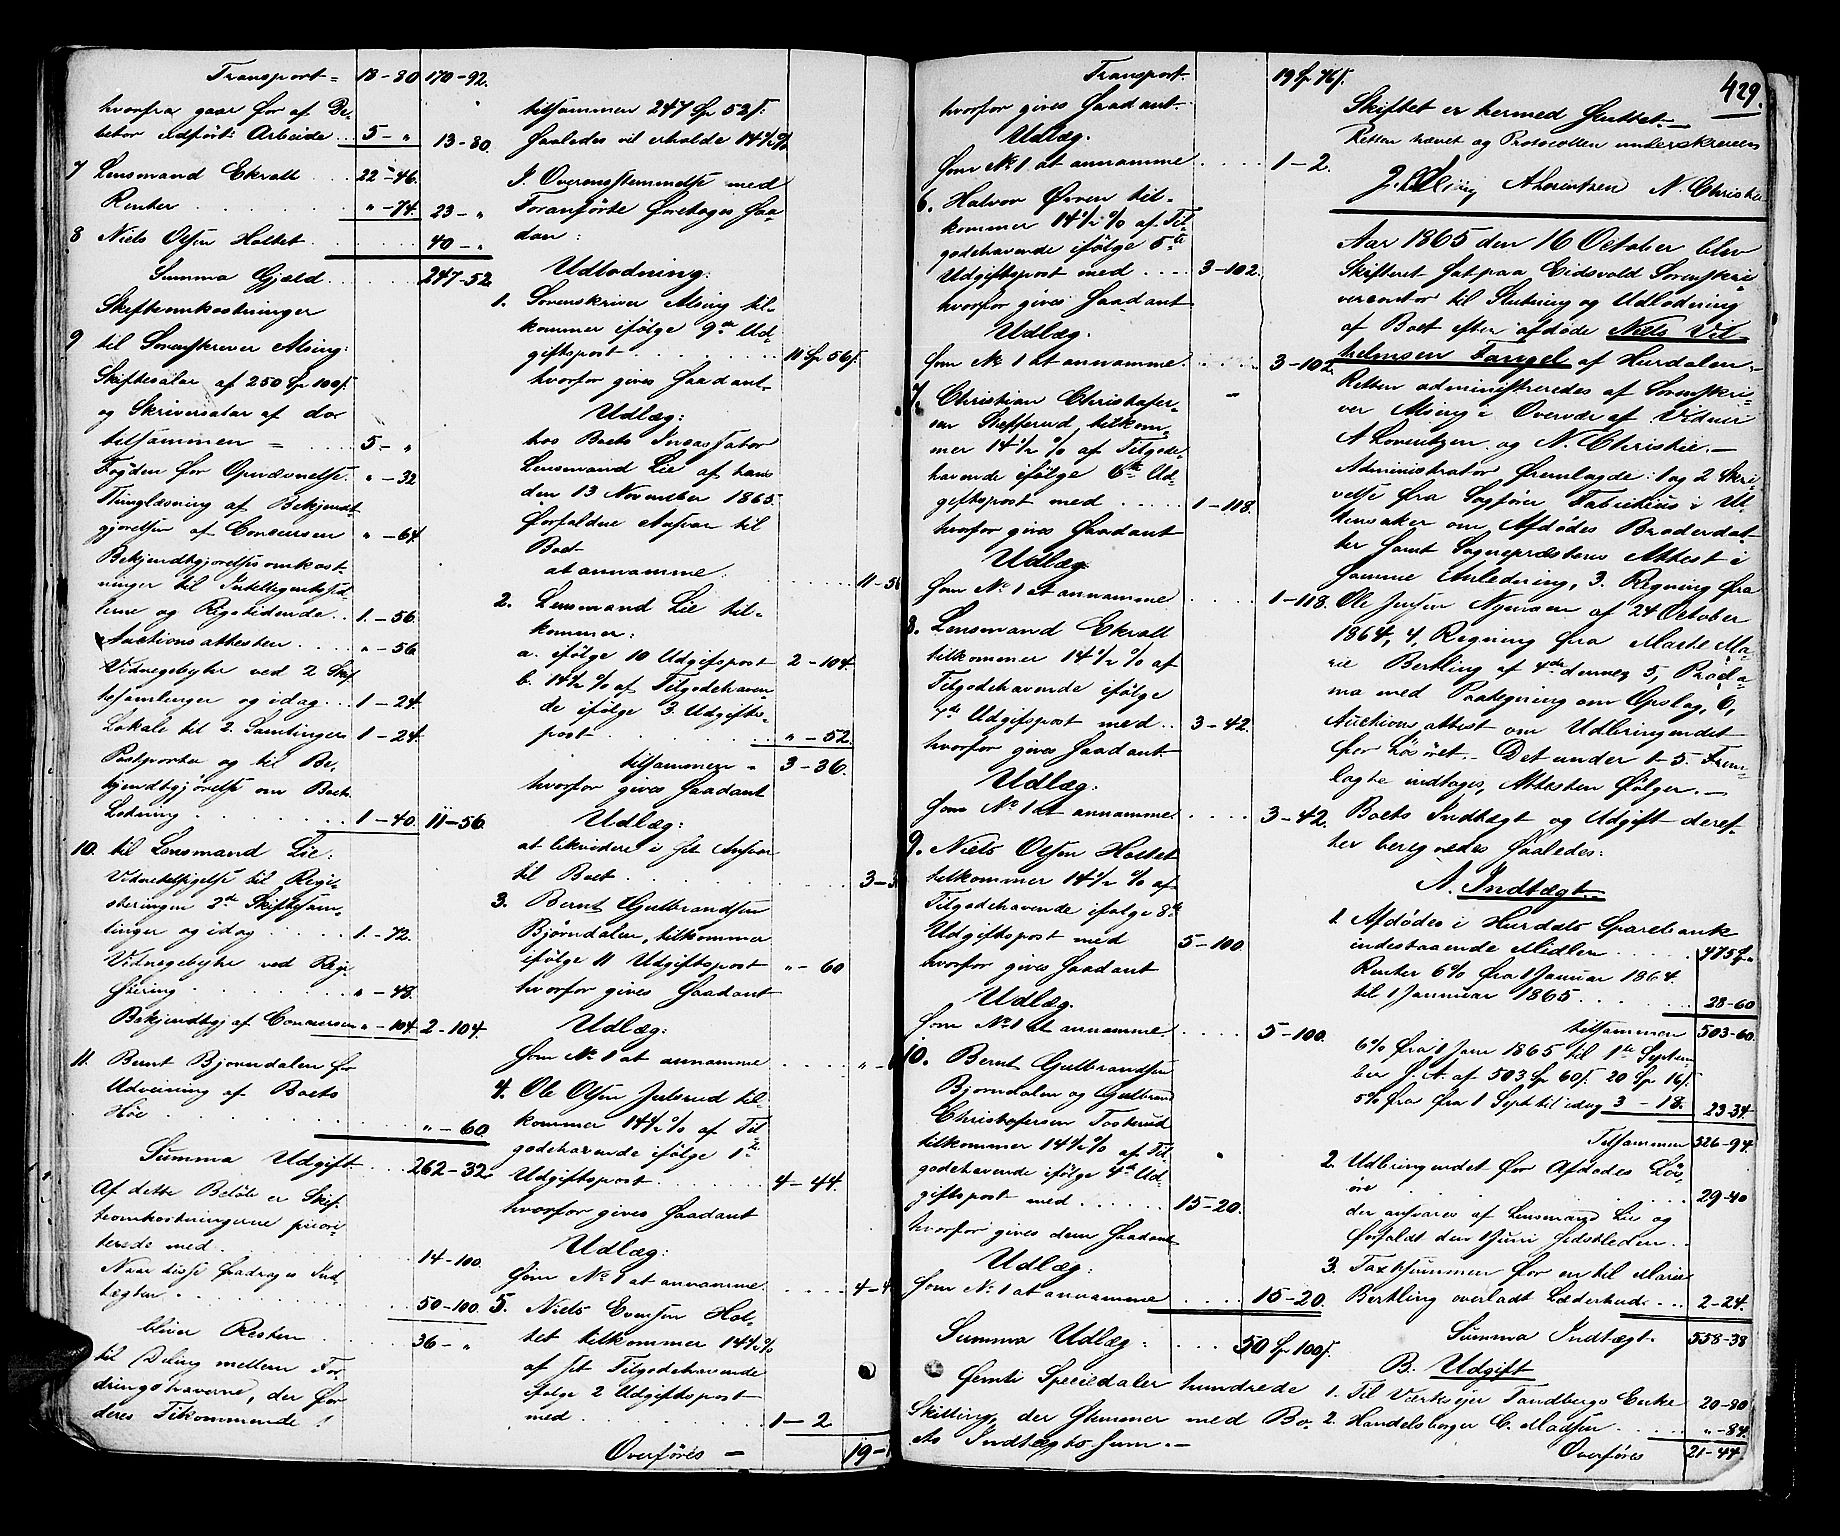 Transport = 18-80 170-92.
hvorfra gaar for af De-
betor udført Arbeide 5-" 13-80.
7 Lensmand Ekrall 22-46.
Renter "-74. 23-"
8 Niels Olsen Holtet 40-"
Summa Gjæld 247-52.
Skifteomkostninger
9 til Sorenskriver Alsing:
Skiftesalær af 250 Sp 100 s.
og Skriversalær af dor
tilsammen = 5-"
Fogden for Opnævnelse "-32
Thinglæsning af Bekjendt-
gjørelsen af Concursen "-64.
Bekjendtgjørelsesomkost-
ninger til Intelligentssed-
lerne og Rigstidende 1-56.
Auctionsattesten "-56
Vidnegebyhr ved 2 Skif-
tesamlinger og idag 1-24.
Lokale til 2 Samlinger 1-24.
Postporto og til Be-
kjendtgjørelse om Boets
Slutning 1-40. 11-56.
10. til Lensmand Lie:
Registe-
ringen 2de Skiftesam-
linger og idag 1-72.
Vidnegebyhr ved Regi-
strering "-48.
Bekjendtgj af Concursen "-104. 2-104.
11. Bernt Bjørndalen for
Udveining af Boets
Høe "-60.
Summa Udgift 262-32.
Af dette Beløb er Skif-
teomkostningerne priori-
terede med 14-100.
Naar disse fradrages Ind-
tægten 50-100.
bliver Resten 36-"
til Deling mellem For-
dringshaverne, der for
deres Tilkommende
tilsammen 247 Sp 52 s.
saaledes vil erholde 14 1/2 %
I Overensstemmelse med
Foranførte foretages saa-
dan:
Udlodning:
1. Sorenskriver Alsing til-
kommer ifølge 9de Ud-
giftspost 11 Sp 56 s.
hvorfor gives saadant
Udlæg:
hos Boets Incassator
Lensmand Lie af hans
den 13 November 1865
forfaldne Ansvar til
Boet
at annamme 11-56
2. Lensmand Lie til-
kommer:
a. ifølge 10 Udgiftspost 2-104.
b. 14 1/2 % af Tilgodehaven-
de ifølge 3 Udgifts-
post "-52.
tilsammen = 3-36.
hvorfor gives saadant
Udlæg:
at likvidere i sit Ansvar
til Boet 3-
3. Bernt Gulbrandsen
Bjørndalen, tilkommer
ifølge 11 Udgiftspost "-60
hvorfor gives saadant
Udlæg:
som No 1 at annamme "-
4. Ole Olsen Julsrud til-
kommer 14 1/2 % af Til-
godehavende ifølge 1ste
Udgiftspost 4-44.
hvorfor gives saadant
Udlæg:
som No 1 at annamme 4-4
5. Niels Evensen Hol-
tet tilkommer 14 1/2 %
af sit Tilgodehavende
ifølge 2 Udgiftspost
med 1-2
Overføres = 19-
Transport 19 Sp 76 s.
hvorfor gives saadant
Udlæg.
som No 1 at annamme 1-2.
6. Halvor Ørven til-
kommer 14 1/2 % af Til-
godehavende ifølge 5te
Udgiftspost med 3-102.
hvorfor gives saadant
Udlæg:
som No 1 at annamme 3-102.
7. Christian Christofer-
sen Stefferud, tilkom-
mer 14 1/2 % af Tilgode-
havende ifølge 6te Ud-
giftspost med 1-118.
hvorfor gives saadant
Udlæg
som No 1 at annamme 1-118.
8. Lensmand Ekrall
tilkommer 14 1/2 % af
Tilgodehavende ifølge
7de Udgiftspost med 3-42.
hvorfor gives saadant
Udlæg:
som No 1 at annamme 3-42.
9. Niels Olsen Holtet
tilkommer 14 1/2 % af
Tilgodehavende ifølge 8de
Udgiftspost med 5-100.
hvorfor gives saadant
Udlæg.
som No 1 at annamme 5-100.
10. Bernt Gulbrandsen
Bjørndalen og Gulbrand
Christofersen Tosterud
tilkommer 14 1/2 % af Til-
godehavende ifølge 4de Ud-
giftspost med 15-20.
hvorfor gives dem saadant
Udlæg:
som No 1 at annamme 15-20.
Summa Udlæg: 50 Sp 100 s.
femti Speciedaler hundrede
Skilling, der stemmer med Bo-
ets Indtægts Sum.-
429.
Skiftet er hermed sluttet.-
Retten hævet og Protocollen underskreven
J. Alsing A Lorentzen N. Christie
Aar 1865 den 16 October blev
Skifteret sat paa Eidsvold Sorenskri-
vercontor til Slutning og Udlodning
af Boet efter afdøde Niels Vil-
helmsen Tangel af Hurdalen.-
Retten administreredes af Sorenskri-
ver Alsing i Overvær af Vidner
A Lorentzen og N. Christie.-
Administrator fremlagde: 1 og 2 Skri-
velse fra Sagfører Fabritius i Ul-
lensaker om Afdødes Broderdat-
ter samt Sognepræstens Attest i
samme Anledning, 3. Regning fra
Ole Jensen af 24 October
1864, 4, Regning fra Ma-
rie Bertling af 4de 5, Procla-
ma med Paategning om Opslag, 6,
Auctionsattest om Udbringendet
for Løsøret.- Det under 1-5 Frem-
lagte indtages, Attesten følger.-
Boets Indtægt og Udgift deref-
ter beregnedes saaledes:
A. Indtægt.
1. Afdødes i Hurdals Sparebank
indestaaende Midler 475 Sp "
Renter 6% fra 1 Januar 1864
til 1 Januar 1865 28-60
tilsammen 503-60.
6% fra 1 Janr 1865 til 1ste Septem-
ber af 503 Sp 60 s. 20 Sp 16 s.
5% fra 1 Septb til idag 3-18. 23-34.
Tilsammen 526-94.
2. Udbringendet for Afdødes Løs-
øre 29-40
der ansvares af Lensmand Lie og
forfaldt den 1 Juni sidstleden
3. Taxtsummen for en til Marie
Bertling overladt Læderhud 2-24.
Summa Indtægt. 558-38
B. Udgift
1. Til Værkseier Tandbergs Enke 20-80
2. Handelsborger C. Madsen "-84.
Overføres 21-44.